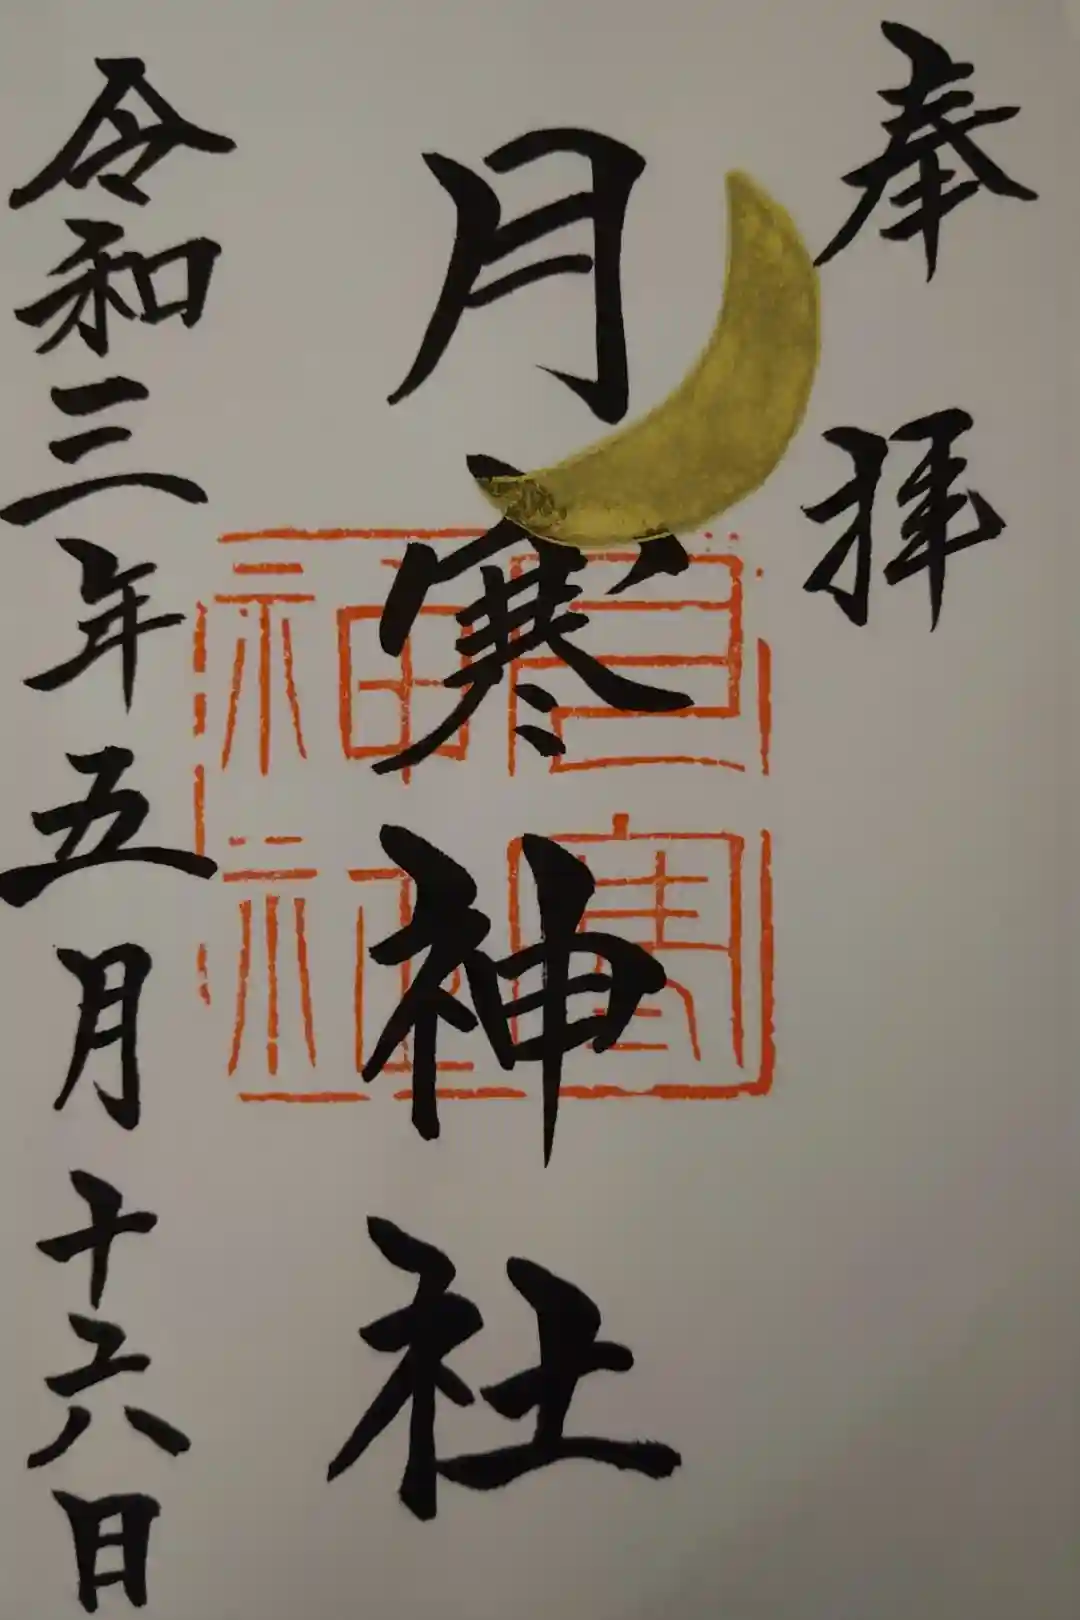 奉拝
月寒神社
月寒神社
令和三年五月十六日